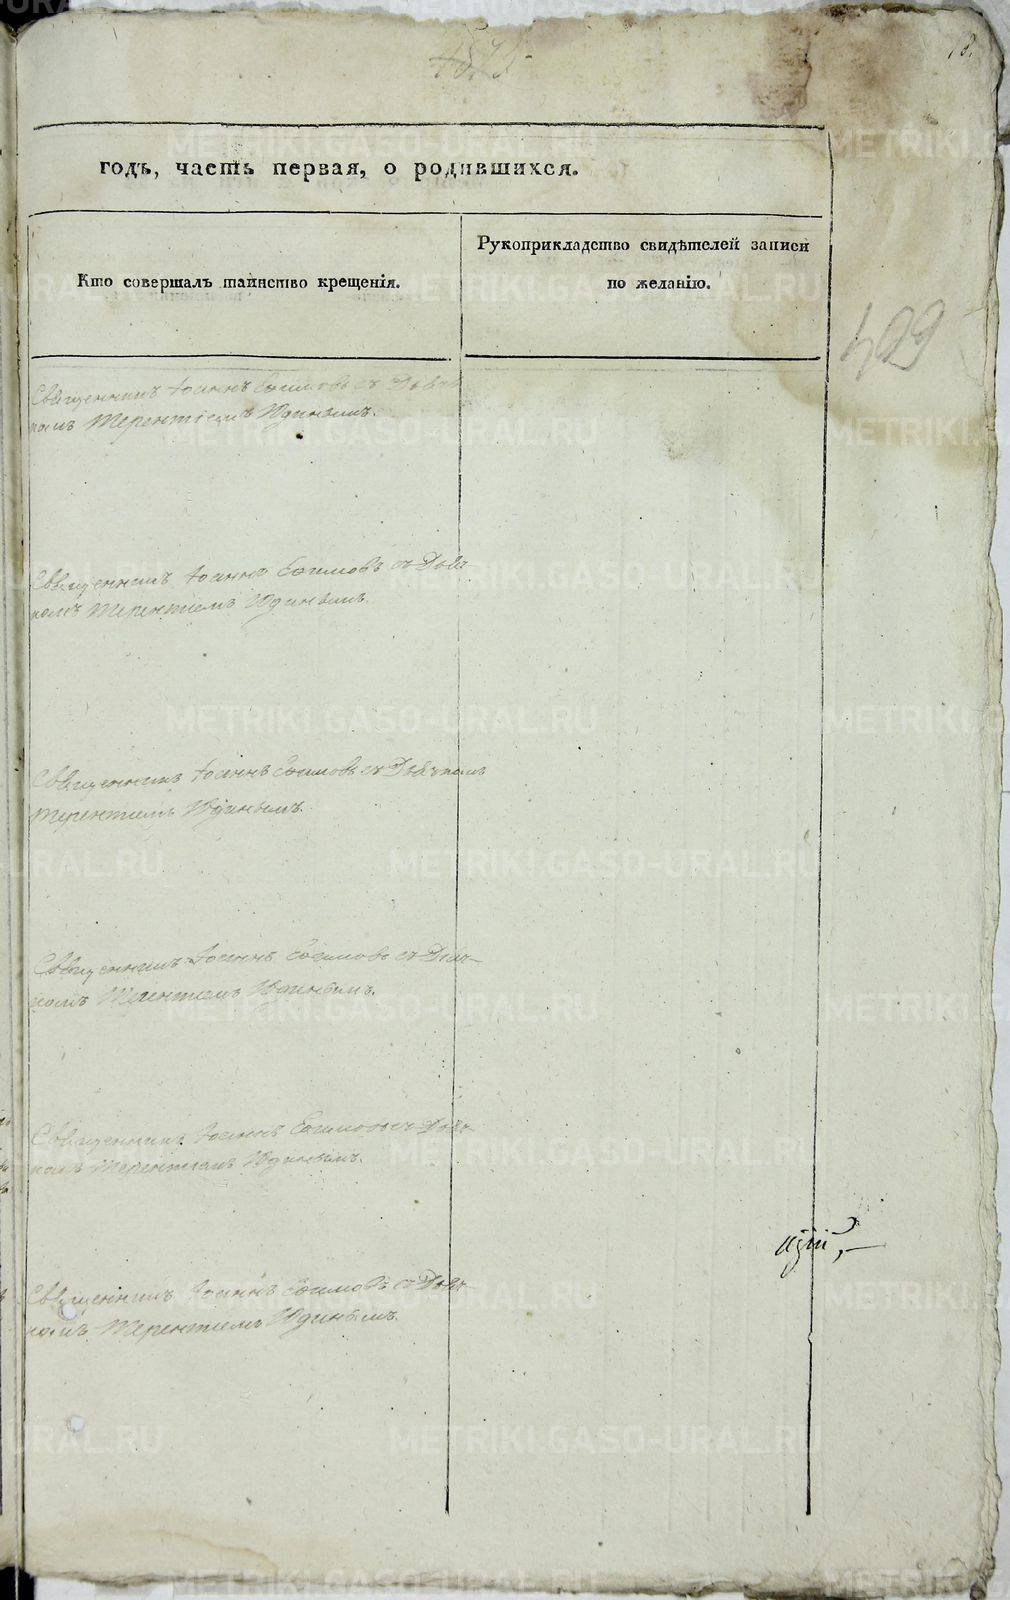 18.
годъ, часть первая, о родившихся.
Кто совершалъ таинство крещенія.
Рукоприкладство свидѣтелей записи
по желанію.
409
Священникъ Іоаннъ Ефимовъ съ Дьяч
комъ Терентіемъ Юдинымъ.
Священникъ Іоаннъ Ефимовъ съ Дьяч
комъ Терентіемъ Юдинымъ.
Священникъ Іоаннъ Ефимовъ съ Дьячкомъ
Терентіемъ Юдинымъ.
Священникъ Іоаннъ Ефимовъ съ Дьяч-
комъ Терентіемъ Юдинымъ.
Священникъ Іоаннъ Ефимовъ съ Дьяч-
комъ Терентіемъ Юдинымъ.
цкій,
Священникъ Іоаннъ Ефимовъ съ Дьяч-
комъ Терентіемъ Юдинымъ.
METRIKI.GASO-URAL.RU